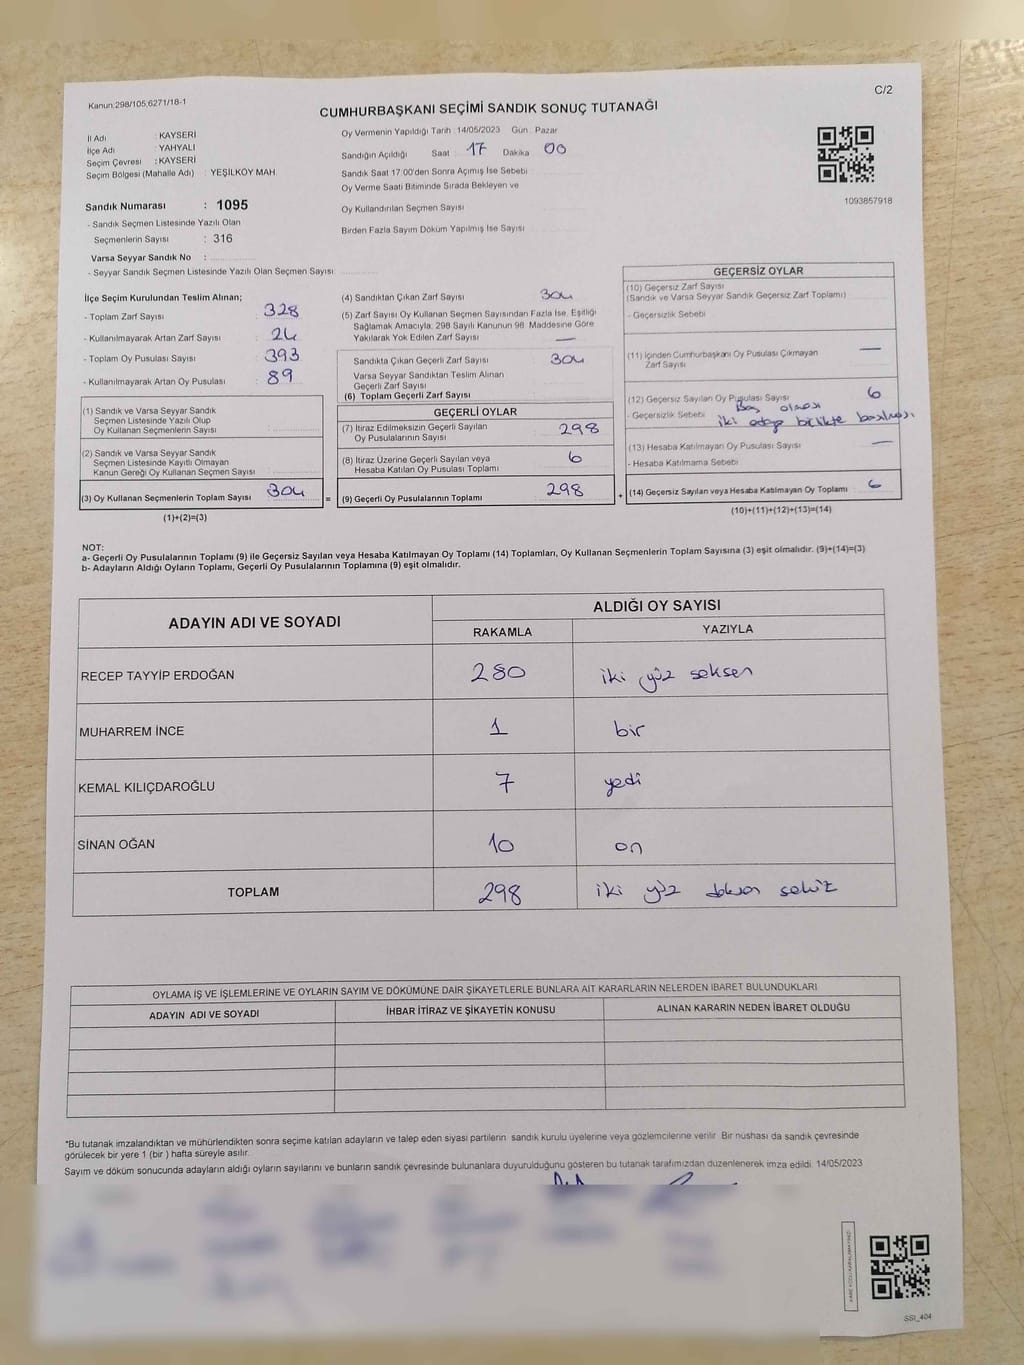 Kanun:298/105,6271/18-1
C/2
CUMHURBAŞKANI SEÇİMİ SANDIK SONUÇ TUTANAĞI
İl Adı : KAYSERİ
İlçe Adı : YAHYALI
Seçim Çevresi : KAYSERİ
Seçim Bölgesi (Mahalle Adı) : YEŞİLKÖY MAH.
Oy Vermenin Yapıldığı Tarih :14/05/2023 Gün : Pazar
Sandığın Açıldığı Saat : 17 Dakika 00
Sandık Saat 17:00'den Sonra Açımış İse Sebebi
Oy Verme Saati Bitiminde Sırada Bekleyen ve
Oy Kullandırılan Seçmen Sayısı
Birden Fazla Sayım Döküm Yapılmış İse Sayısı
1093857918
Sandık Numarası : 1095
- Sandık Seçmen Listesinde Yazılı Olan
Seçmenlerin Sayısı : 316
Varsa Seyyar Sandık No :
- Seyyar Sandık Seçmen Listesinde Yazılı Olan Seçmen Sayısı
İlçe Seçim Kurulundan Teslim Alınan;
- Toplam Zarf Sayısı : 328
- Kullanılmayarak Artan Zarf Sayısı : 24
- Toplam Oy Pusulası Sayısı : 393
- Kullanılmayarak Artan Oy Pusulası : 89
(1) Sandık ve Varsa Seyyar Sandık
Seçmen Listesinde Yazılı Olup
Oy Kullanan Seçmenlerin Sayısı :
(2) Sandık ve Varsa Seyyar Sandık
Seçmen Listesinde Kayıtlı Olmayan
Kanun Gereği Oy Kullanan Seçmen Sayısı :
(3) Oy Kullanan Seçmenlerin Toplam Sayısı : 304
(1)+(2)=(3)
=
(4) Sandıktan Çıkan Zarf Sayısı : 304
(5) Zarf Sayısı Oy Kullanan Seçmen Sayısından Fazla İse, Eşitliği
Sağlamak Amacıyla; 298 Sayılı Kanunun 98. Maddesine Göre
Yakılarak Yok Edilen Zarf Sayısı : —
Sandıkta Çıkan Geçerli Zarf Sayısı : 304
Varsa Seyyar Sandıktan Teslim Alınan
Geçerli Zarf Sayısı
(6) Toplam Geçerli Zarf Sayısı
GEÇERLİ OYLAR
(7) İtiraz Edilmeksizin Geçerli Sayılan
Oy Pusulalarının Sayısı : 298
(8) İtiraz Üzerine Geçerli Sayılan veya
Hesaba Katılan Oy Pusulası Toplamı : 6
(9) Geçerli Oy Pusulalarının Toplamı : 298
+
GEÇERSİZ OYLAR
(10) Geçersiz Zarf Sayısı
(Sandık ve Varsa Seyyar Sandık Geçersiz Zarf Toplamı)
- Geçersizlik Sebebi
(11) İçinden Cumhurbaşkanı Oy Pusulası Çıkmayan
Zarf Sayısı —
(12) Geçersiz Sayılan Oy Pusulası Sayısı 6
- Geçersizlik Sebebi Boş olması
iki aday birlikte basılması
(13) Hesaba Katılmayan Oy Pusulası Sayısı —
- Hesaba Katılmama Sebebi
(14) Geçersiz Sayılan veya Hesaba Katılmayan Oy Toplamı 6
(10)+(11)+(12)+(13)=(14)
NOT:
a- Geçerli Oy Pusulalarının Toplamı (9) ile Geçersiz Sayılan veya Hesaba Katılmayan Oy Toplamı (14) Toplamları, Oy Kullanan Seçmenlerin Toplam Sayısına (3) eşit olmalıdır. (9)+(14)=(3)
b- Adayların Aldığı Oyların Toplamı, Geçerli Oy Pusulalarının Toplamına (9) eşit olmalıdır.
ADAYIN ADI VE SOYADI ALDIĞI OY SAYISI
RAKAMLA YAZIYLA
RECEP TAYYİP ERDOĞAN 280 iki yüz seksen
MUHARREM İNCE 1 bir
KEMAL KILIÇDAROĞLU 7 yedi
SİNAN OĞAN 10 on
TOPLAM 298 iki yüz doksan sekiz
OYLAMA İŞ VE İŞLEMLERİNE VE OYLARIN SAYIM VE DÖKÜMÜNE DAİR ŞİKAYETLERLE BUNLARA AİT KARARLARIN NELERDEN İBARET BULUNDUKLARI
ADAYIN ADI VE SOYADI İHBAR İTİRAZ VE ŞİKAYETİN KONUSU ALINAN KARARIN NEDEN İBARET OLDUĞU
*Bu tutanak imzalandıktan ve mühürlendikten sonra seçime katılan adayların ve talep eden siyasi partilerin sandık kurulu üyelerine veya gözlemcilerine verilir. Bir nüshası da sandık çevresinde
görülecek bir yere 1 (bir ) hafta süreyle asılır.
Sayım ve döküm sonucunda adayların aldığı oyların sayılarını ve bunların sandık çevresinde bulunanlara duyurulduğunu gösteren bu tutanak tarafımızdan düzenlenerek imza edildi. 14/05/2023
SSI_404